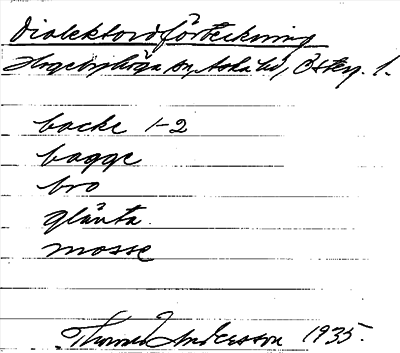 Dialektordförteckning
Hagebyhöga sn, Aska hd, Österg. l.
backe 1-2
bagge
bro
glänta
mosse
Thorsten Andersson 1935.